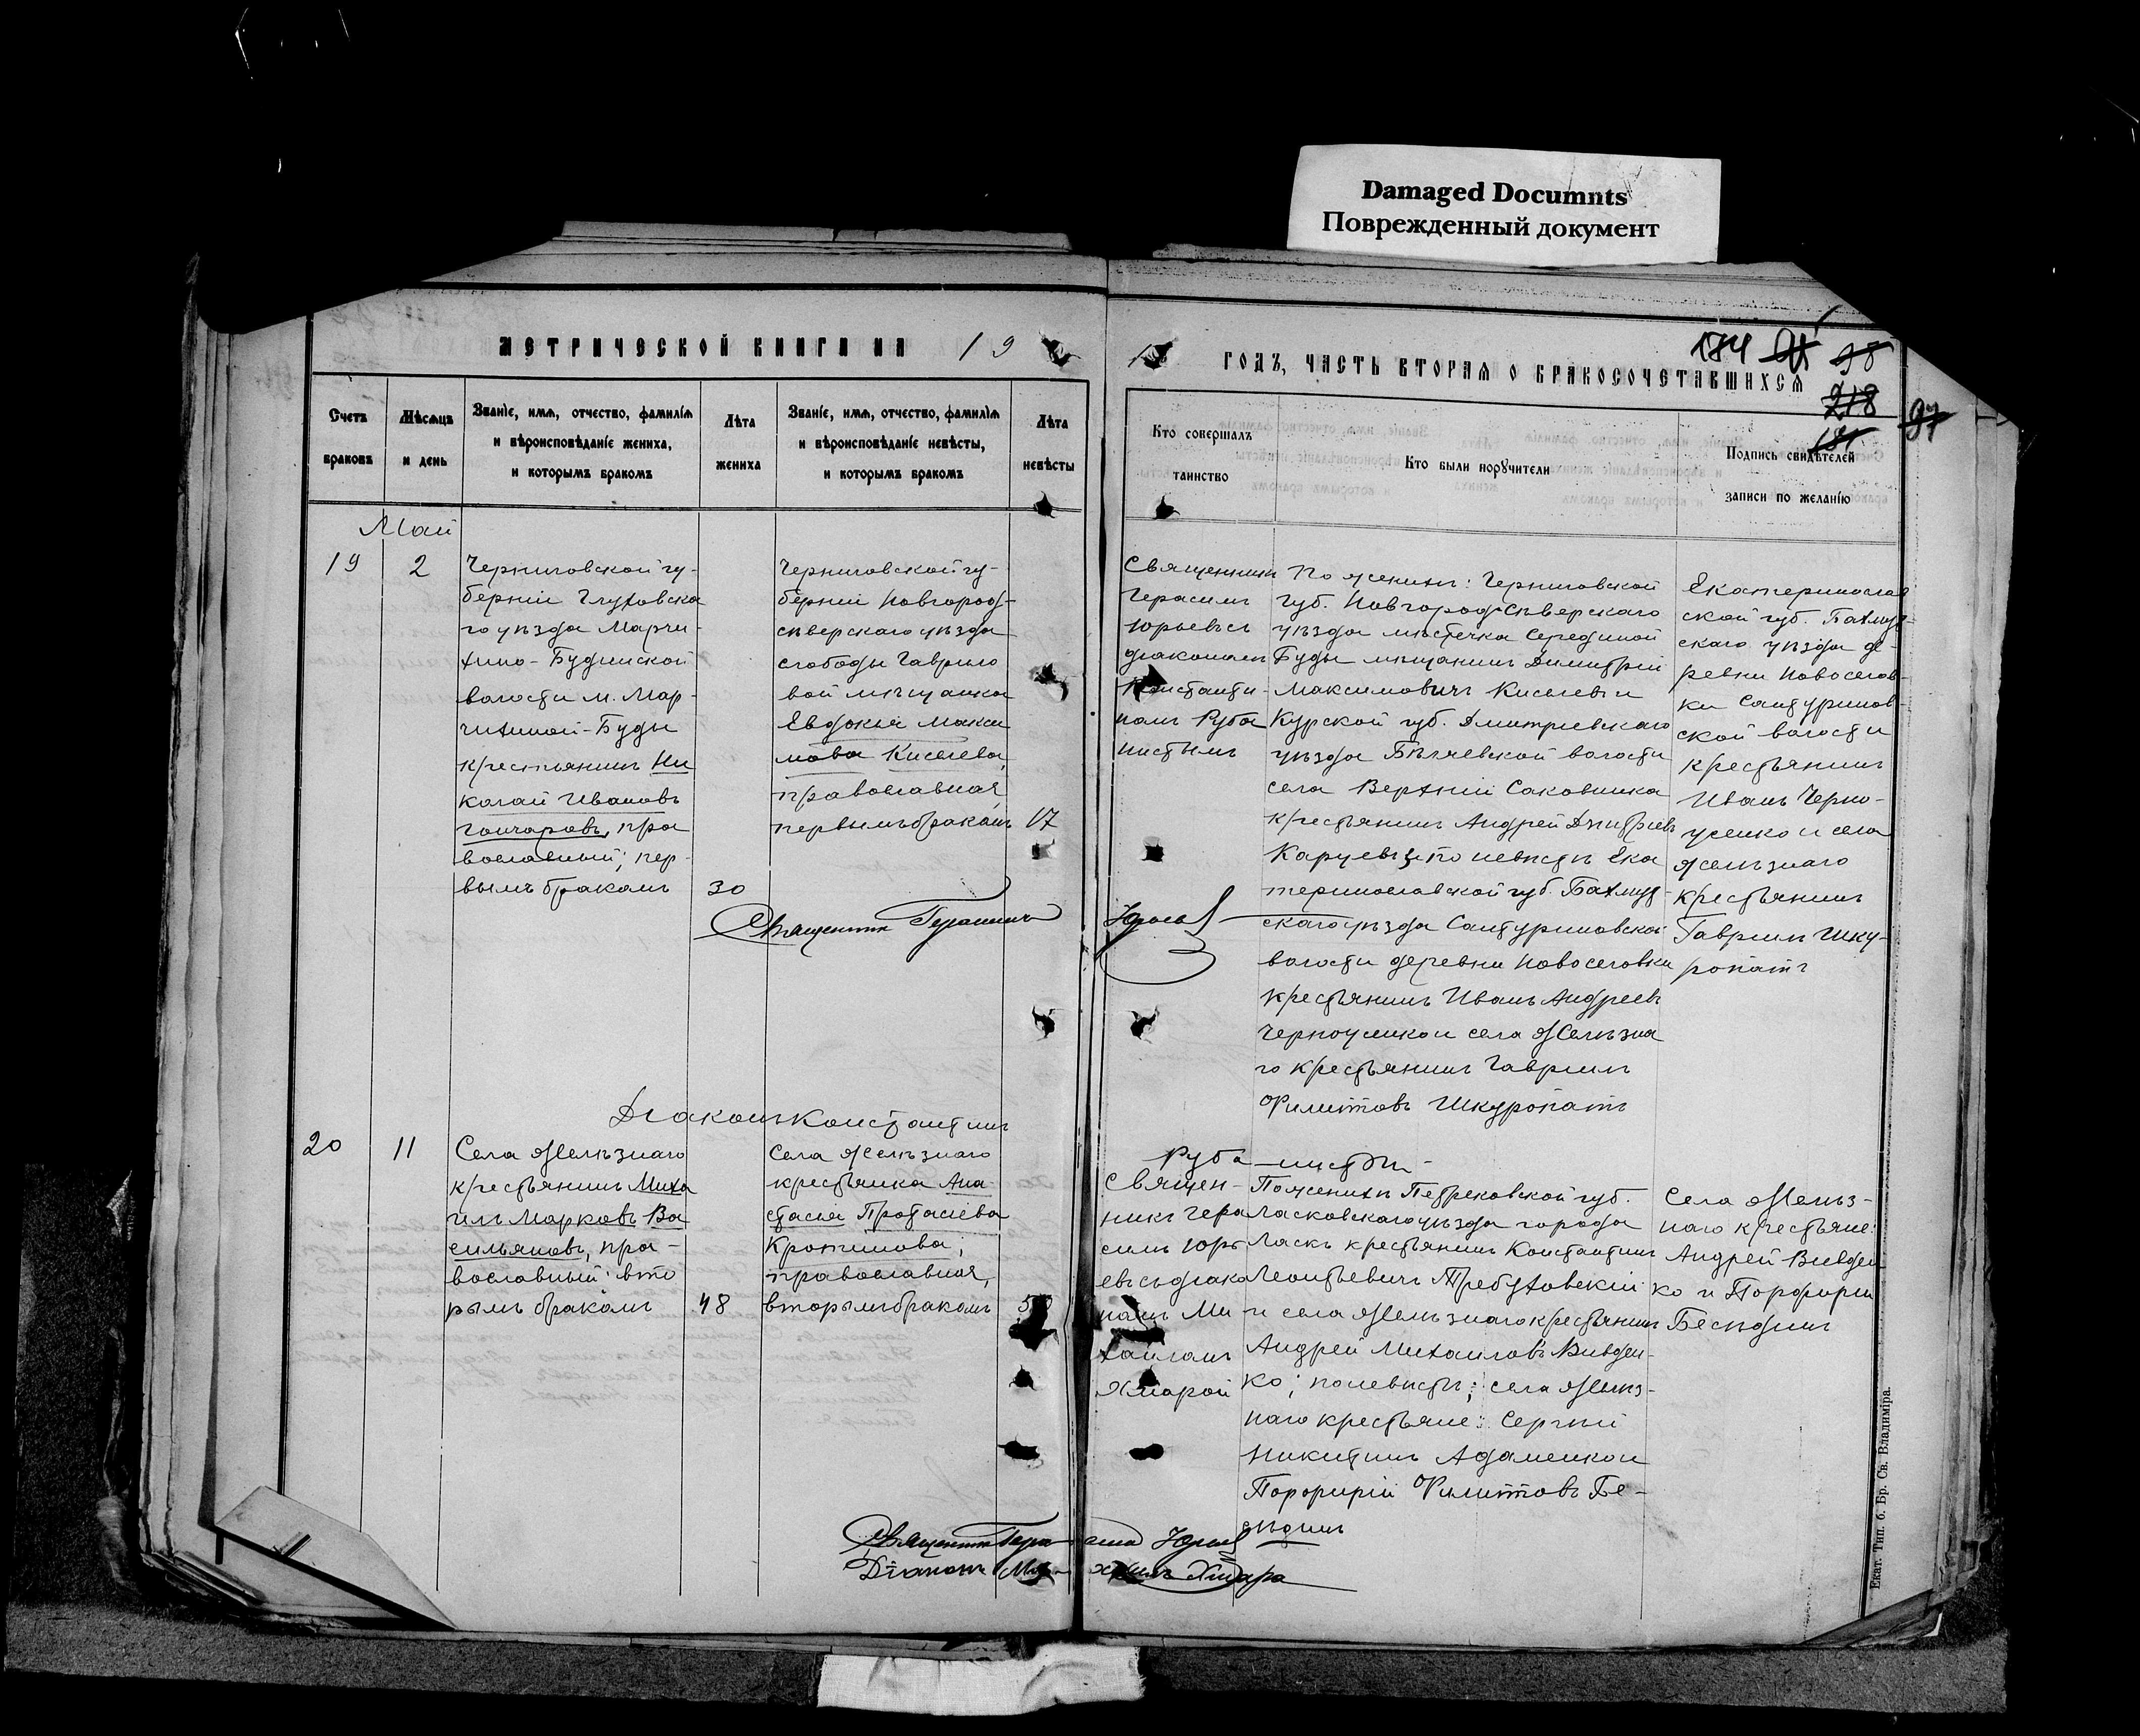 Damaged Documnts
Поврежденный документ
МЕТРИЧЕСКОЙ КНИГИ НА 19
ГОДЪ, ЧАСТЬ ВТОРАЯ О БРАКОСОЧЕТАВШИХСЯ
184
98
218
97
181
Счетъ
браковъ
Мѣсяцъ
и день
Званіе, имя, отчество, фамилія
и вѣроисповѣданіе жениха,
и которымъ бракомъ
Лѣта
жениха
Званіе, имя, отчество, фамилія
и вѣроисповѣданіе невѣсты,
и которымъ бракомъ
Лѣта
невѣсты
Кто совершалъ
таинство
Кто были поручители
Подпись свидѣтелей
записи по желанію
Май
19
2
Черниговской гу-
берніи Глуховска
го уѣзда Марчи-
хино-Будинской
волости м. Мар-
чихиной-Буды
крестьянинъ Ни
колай Ивановъ
Гончаровъ, пра
вославный; пер-
вымъ бракомъ
30
Черниговской гу-
берніи Новгород-
сѣверскаго уѣзда
слободы Гаврило
вой мѣщанка
Евдокія Макси
мова Киселева,
православная
первымъ бракомъ
17
Священникъ
Герасимъ
Юрьевъ съ
діакономъ
Константи-
номъ Руба
нистымъ
По женихѣ: Черниговской
губ. Новгородсѣверскаго
уѣзда мѣстечка Середіной
Буды мѣщанинъ Димитрій
Максимовичъ Киселевъ и
Курской губ. Дмитріевскаго
уѣзда Бѣляевской волости
села Верхній Саковника
крестьянинъ Андрей Дмитріевъ
Каруевъ; по невѣстѣ Ека
теринославской губ. Бахмут-
скаго уѣзда Сантуриновской
волости деревни Новоселовки
крестьянинъ Иванъ Андреевъ
Черноусенко и села Желѣзна
го крестьянинъ Гавріилъ
Филитовъ Шкуропатъ
Екатеринослав
ской губ. Бахмут-
скаго уѣзда де-
ревни Новоселов-
ки Сантуринов-
ской волости
крестьянинъ
Иванъ Черно-
усенко и села
Желѣзнаго
крестьянинъ
Гавріилъ Шку-
ропатъ
Священникъ Герасимъ Юрьевъ
Діаконъ Константинъ
Рубанистый
20
11
Села Желѣзнаго
крестьянинъ Миха
илъ Марковъ Ва
сильяновъ, пра-
вославный; вто
рымъ бракомъ
48
Села Желѣзнаго
крестьянка Ана
стасія Протасіева
Кротинова;
православная,
вторымъ бракомъ
Священ-
никъ Гера
симъ Юрь
евъ съ діако
номъ Ми
хаиломъ
Хмарой
По женихѣ Петроковской губ.
Ласковскаго уѣзда города
Ласкъ крестьянинъ Константинъ
Леонтьевичъ Требуховскій
и села Желѣзнаго крестьянинъ
Андрей Михаиловъ Вивден-
ко; по невѣстѣ; села Желѣз-
наго крестьяне: Сергій
Никитинъ Адаменко и
Порфирій Филитовъ Бе-
сѣдинъ
Села Желѣз-
наго крестьяне:
Андрей Вивден
ко и Порфирій
Бесѣдинъ
Священникъ Герасимъ Юрьевъ
Діаконъ Михаилъ Хмара
Екат. Тип. б. Бр. Св. Владиміра.